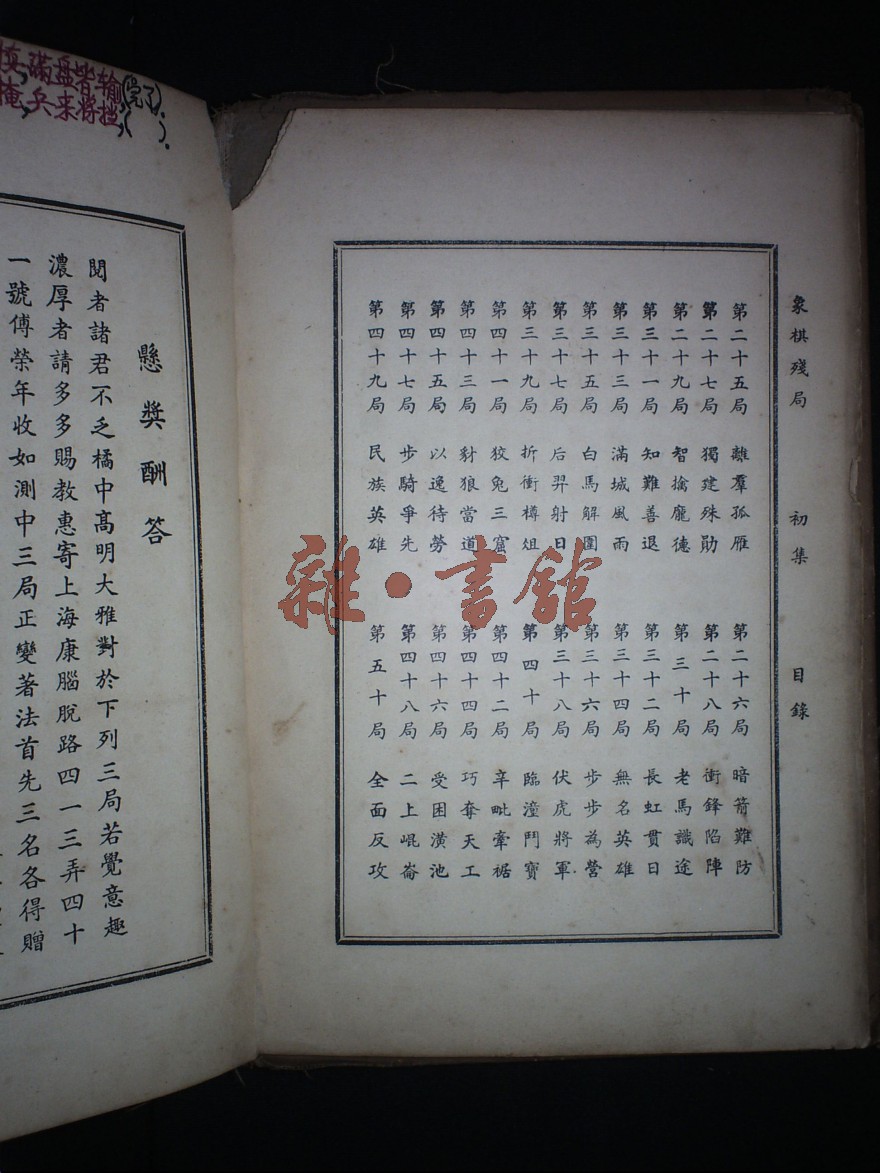 象棋殘局 初集 目錄
第二十五局 離羣孤雁 第二十六局 暗箭難防
第二十七局 獨建殊勛 第二十八局 衝鋒陷陣
第二十九局 智擒龐德 第三十局 老馬識途
第三十一局 知難善退 第三十二局 長虹貫日
第三十三局 滿城風雨 第三十四局 無名英雄
第三十五局 白馬解圍 第三十六局 步步為營
第三十七局 后羿射日 第三十八局 伏虎將軍
第三十九局 折衝樽俎 第四十局 臨潼鬥寶
第四十一局 狡兔三窟 第四十二局 辛毗牽裾
第四十三局 豺狼當道 第四十四局 巧奪天工
第四十五局 以逸待勞 第四十六局 受困潢池
第四十七局 步騎爭先 第四十八局 二上崐崙
第四十九局 民族英雄 第五十局 全面反攻
雜·書館
滿盤皆输(完了).
兵来将挡,( ).
懸獎酬答
閱者諸君不乏橘中高明大雅對於下列三局若覺意趣
濃厚者請多多賜教惠寄上海康腦脫路四一三弄四十
一號傅榮年收如測中三局正變著法首先三名各得贈